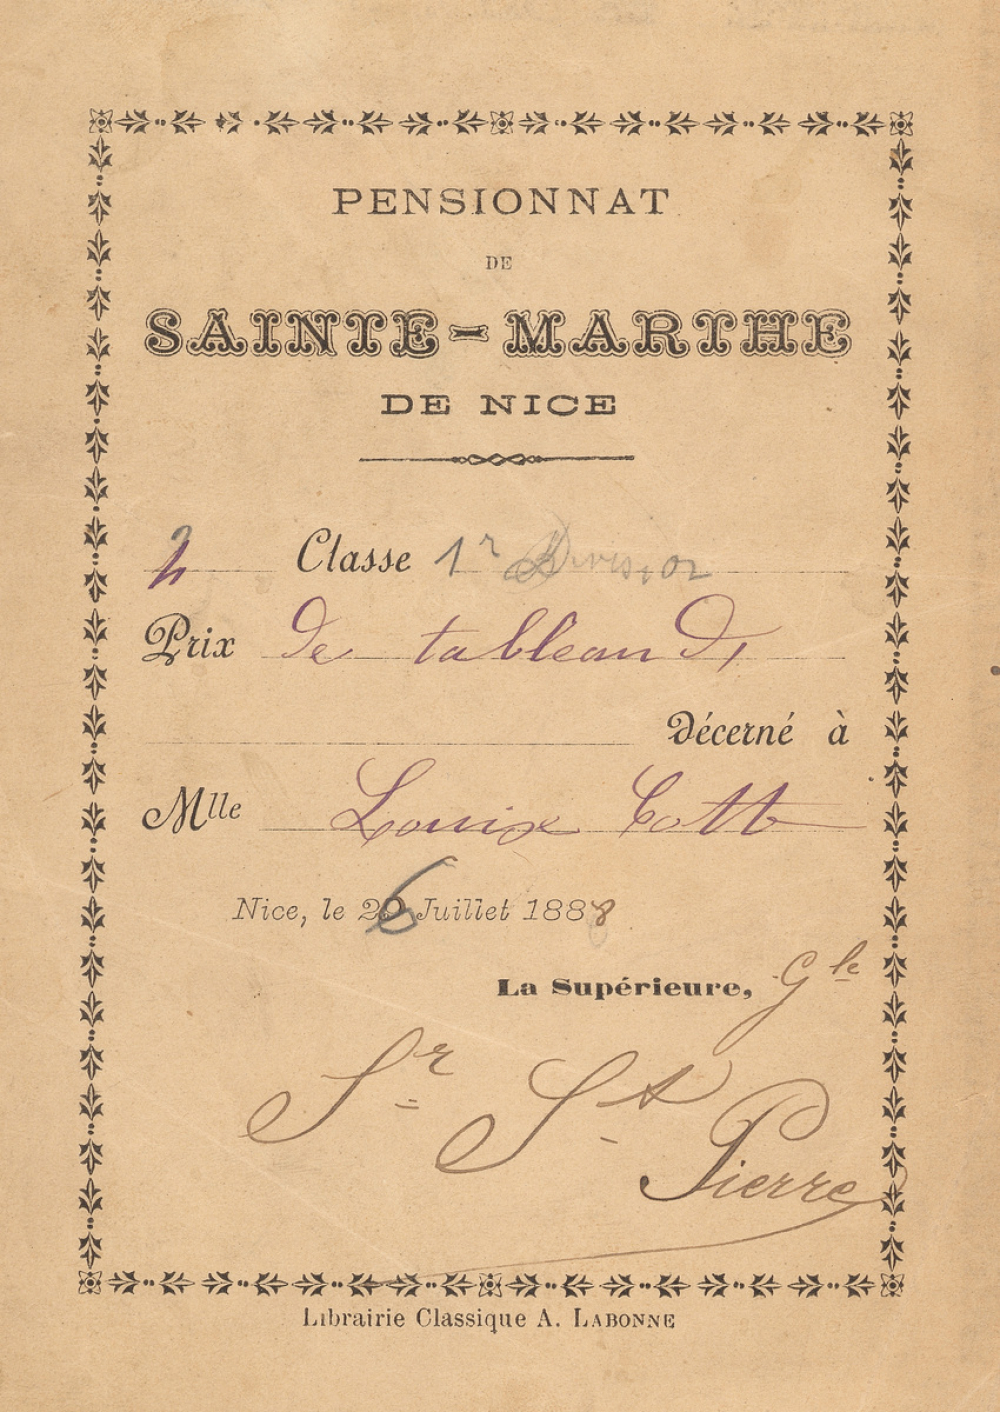 PENSIONNAT
DE
SAINTE-MARTHE
DE NICE
Classe 1r Division
Prix de tableau
Décerné à
Mlle Louise Cott
Nice, le 26 Juillet 1888
La Supérieure, Gle
Sr St
Pierre
Librairie Classique A. LABONNE